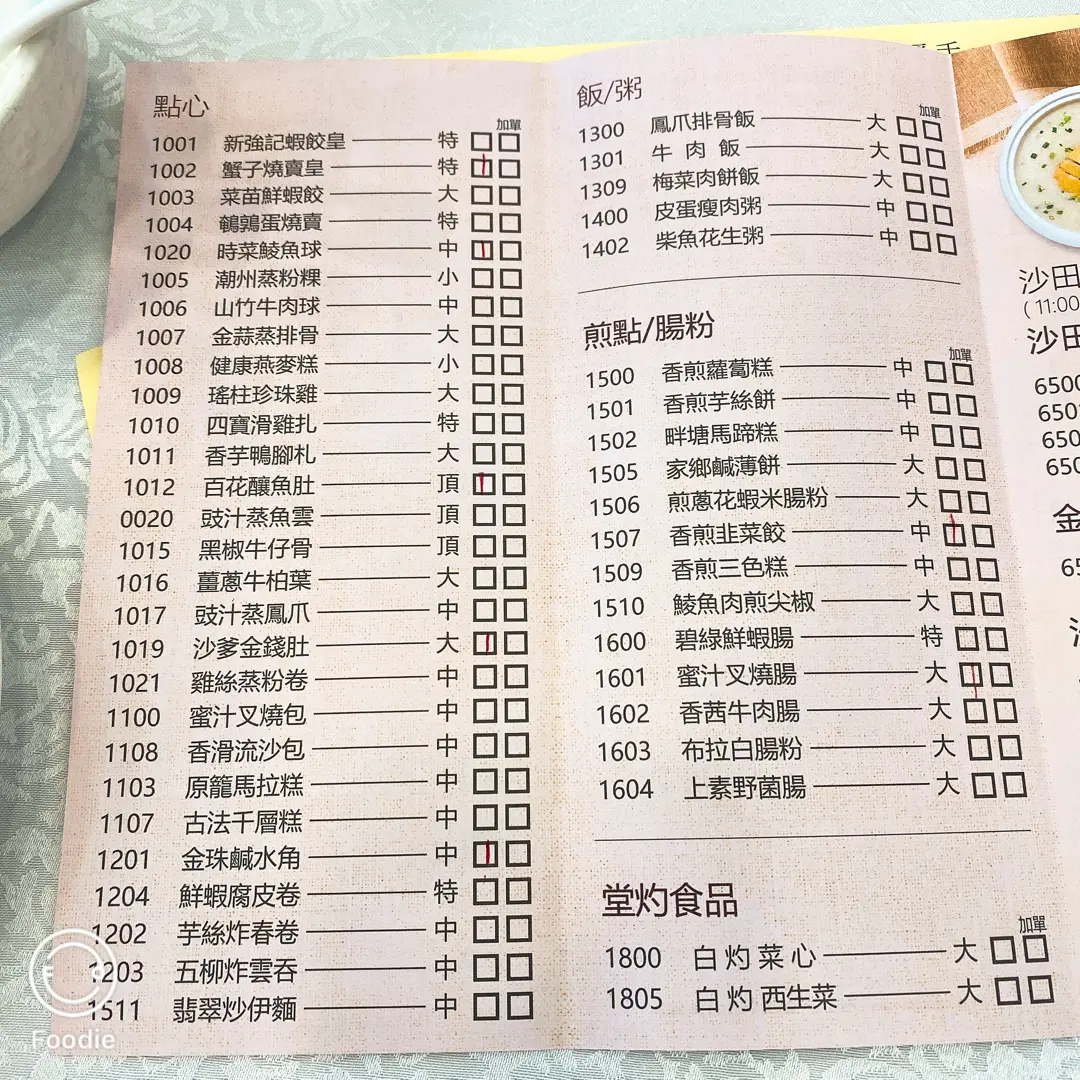 點心
加單
1001 新強記蝦餃皇 特
1002 蟹子燒賣皇 特
1003 菜苗鮮蝦餃 大
1004 鵪鶉蛋燒賣 特
1020 時菜鯪魚球 中
1005 潮州蒸粉粿 小
1006 山竹牛肉球 中
1007 金蒜蒸排骨 大
1008 健康燕麥糕 小
1009 瑤柱珍珠雞 大
1010 四寶滑雞扎 特
1011 香芋鴨腳札 大
1012 百花釀魚肚 頂
0020 豉汁蒸魚雲 頂
1015 黑椒牛仔骨 頂
1016 薑蔥牛柏葉 大
1017 豉汁蒸鳳爪 中
1019 沙爹金錢肚 大
1021 雞絲蒸粉卷 中
1100 蜜汁叉燒包 中
1108 香滑流沙包 中
1103 原籠馬拉糕 中
1107 古法千層糕 中
1201 金珠鹹水角 中
1204 鮮蝦腐皮卷 特
1202 芋絲炸春卷 中
1203 五柳炸雲吞 中
1511 翡翠炒伊麵 中
飯/粥
加單
1300 鳳爪排骨飯 大
1301 牛肉飯 大
1309 梅菜肉餅飯 大
1400 皮蛋瘦肉粥 中
1402 柴魚花生粥 中
煎點/腸粉
加單
1500 香煎蘿蔔糕 中
1501 香煎芋絲餅 中
1502 畔塘馬蹄糕 中
1505 家鄉鹹薄餅 大
1506 煎蔥花蝦米腸粉 大
1507 香煎韭菜餃 中
1509 香煎三色糕 中
1510 鯪魚肉煎尖椒 大
1600 碧綠鮮蝦腸 特
1601 蜜汁叉燒腸 大
1602 香茜牛肉腸 大
1603 布拉白腸粉 大
1604 上素野菌腸 大
堂灼食品
加單
1800 白灼菜心 大
1805 白灼西生菜 大
沙田
(11:00
沙田
6500
650
650
650
金
65
Foodie